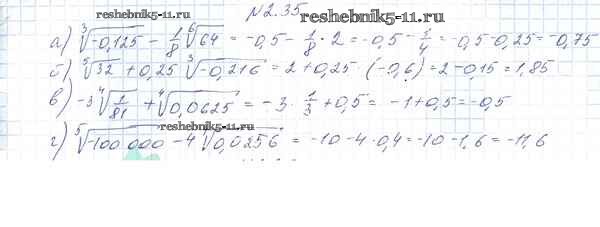 reshebnik5-11.ru
№2.35
reshebnik5-11.ru
а) ∛(-0,125) - 1/8 ⁶√64 = -0,5 - 1/8 · 2 = -0,5 - 1/4 = -0,5 - 0,25 = -0,75
б) ⁵√32 + 0,25 ∛(-0,216) = 2 + 0,25 · (-0,6) = 2 - 0,15 = 1,85
в) -3 ⁴√(1/81) + ⁴√0,0625 = -3 · 1/3 + 0,5 = -1 + 0,5 = -0,5
reshebnik5-11.ru
г) ⁵√(-100 000) - 4 ⁴√0,0256 = -10 - 4 · 0,4 = -10 - 1,6 = -11,6